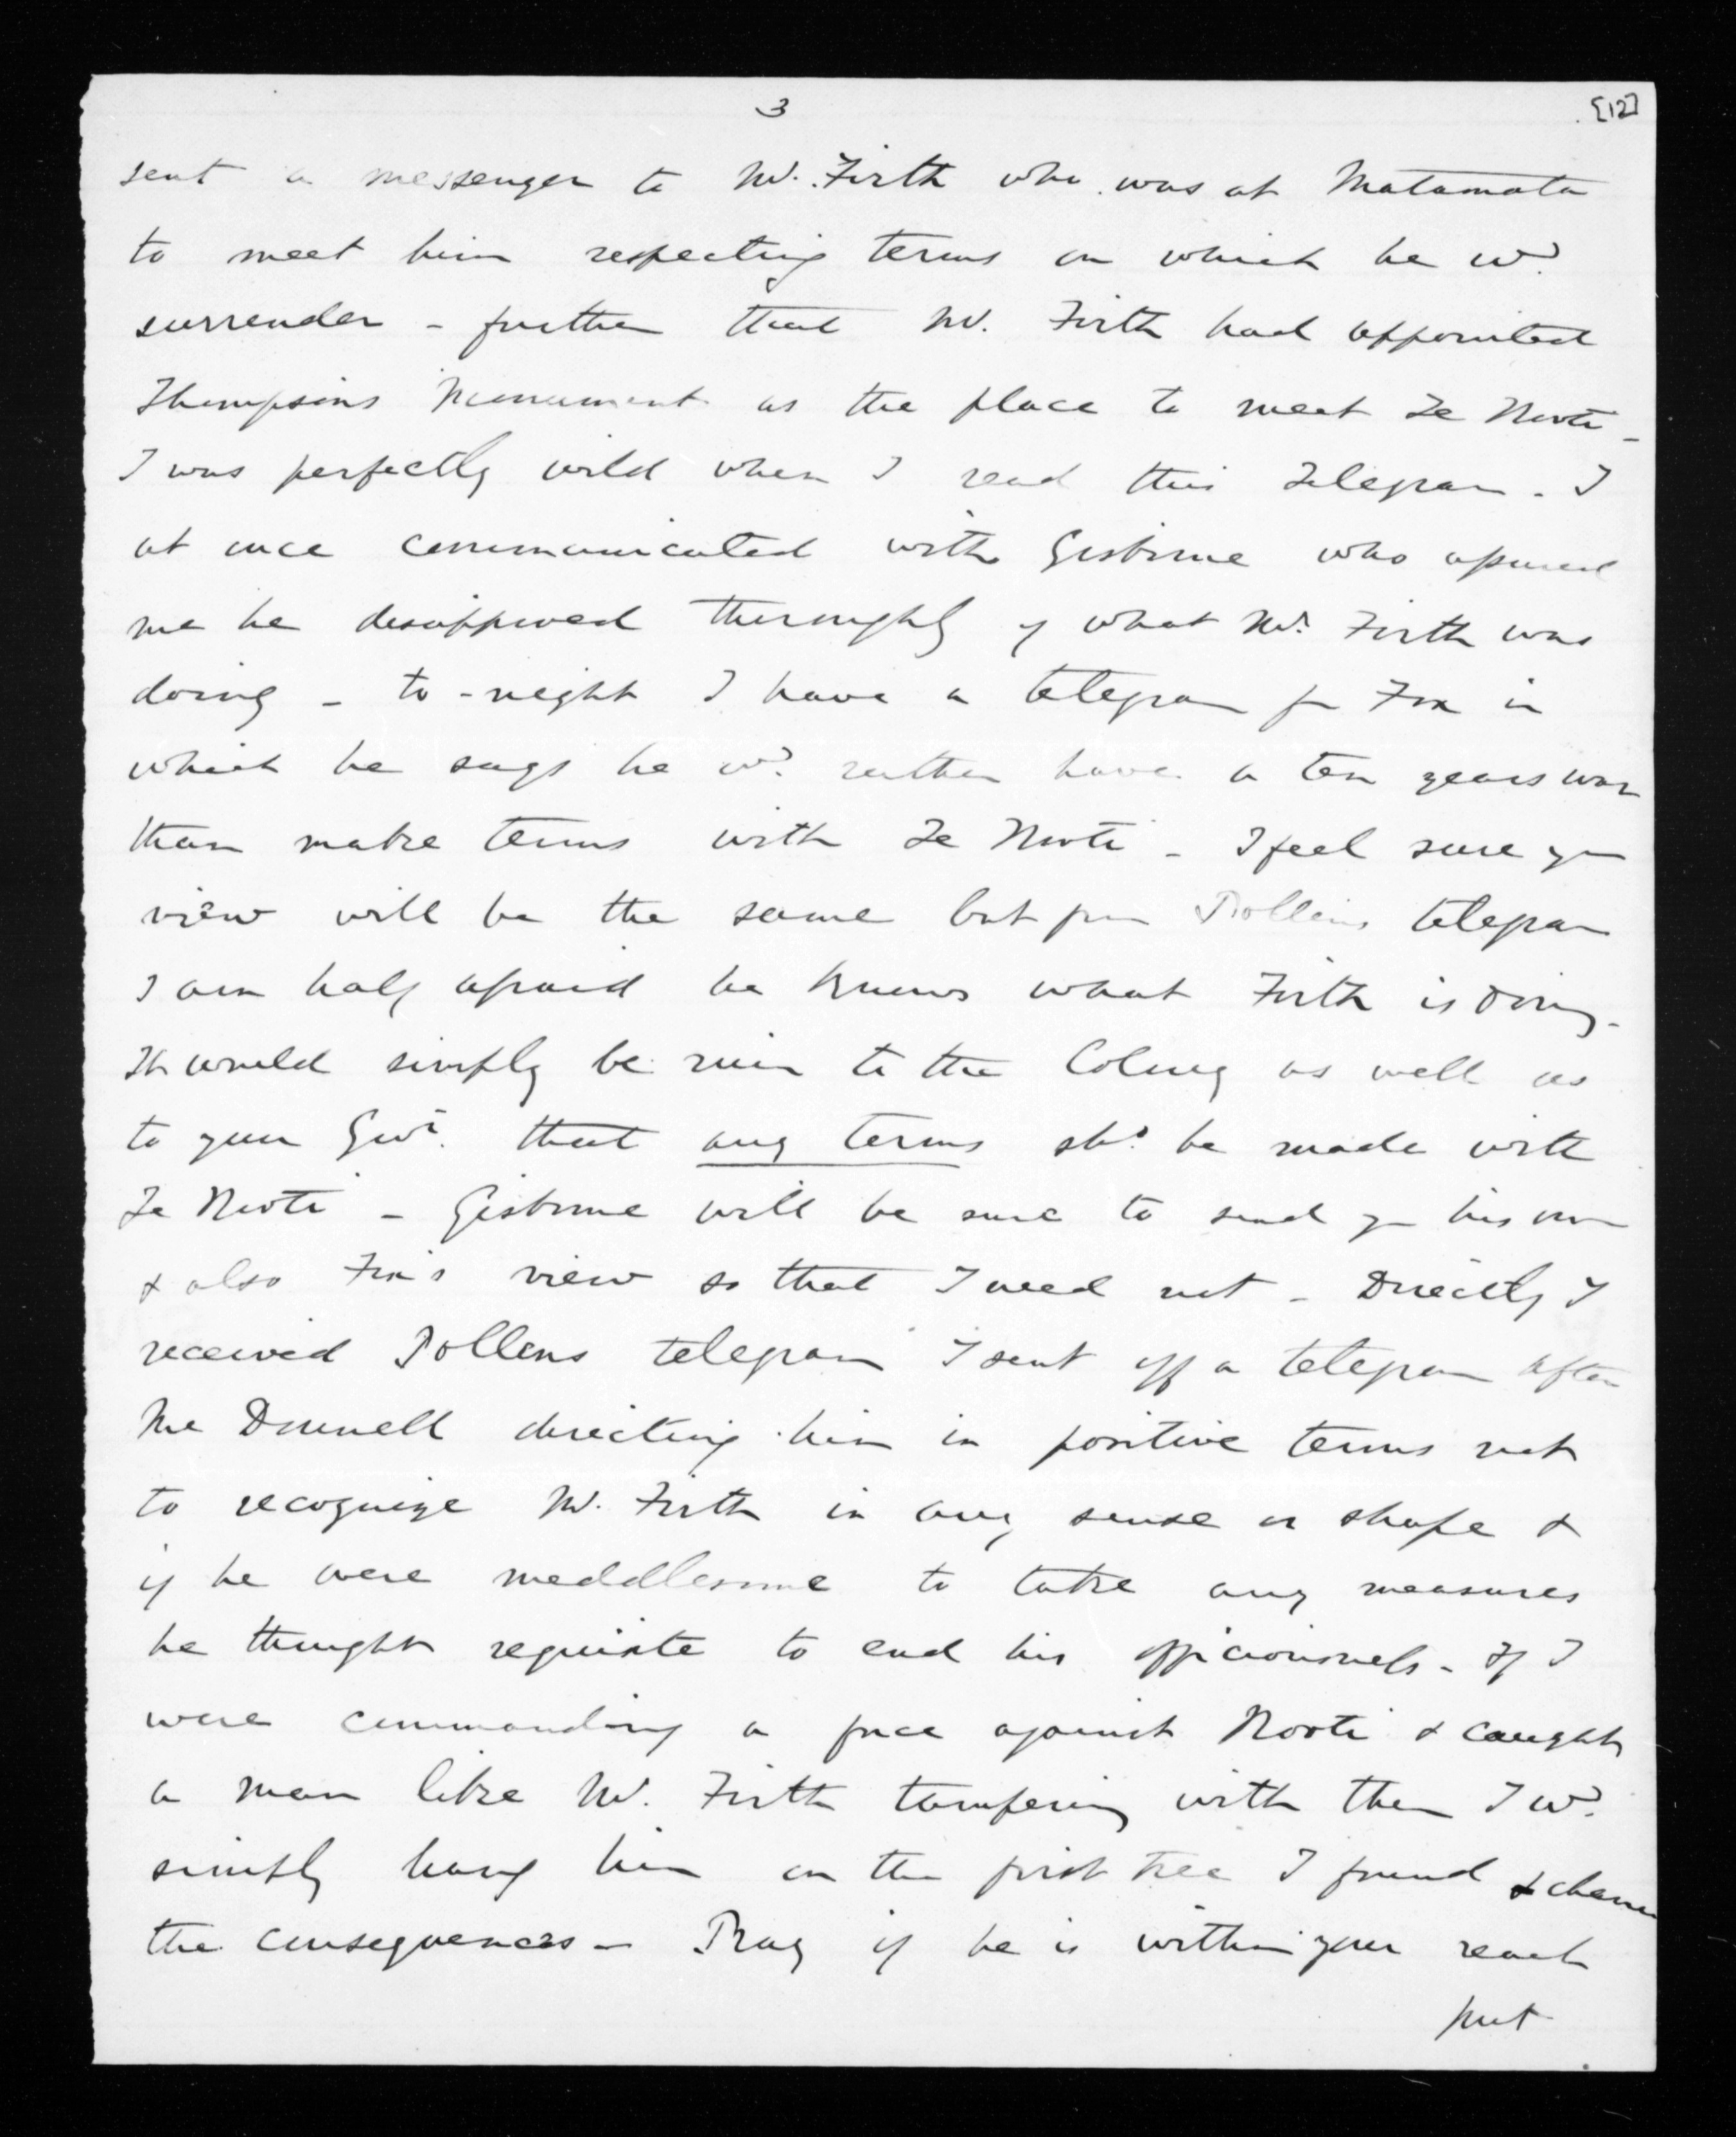 3
[12]
sent a messenger to Mr. Firth who was at Matamata
to meet him respecting terms on which he wd.
surrender - further that Mr. Firth had appointed
Thompsons Monument as the place to meet Te Kooti -
I was perfectly wild when I read this telegram - I
at once communicated with Gisborne who assured
me he disapproved thoroughly of what Mr. Firth was
doing - to-night I have a telegram fm Fox in
which he says he wd. rather have a ten years war
than make terms with Te Kooti - I feel sure yr
view will be the same but from Pollens telegram
I am half afraid he knows what Firth is doing -
It would simply be ruin to the Colony as well as
to your Govt. that any terms shd. be made with
Te Kooti - Gisborne will be sure to send you his own
& also Fox's view so that I need not - Directly I
received Pollens telegram I sent off a telegram after
Mc Donnell directing him in positive terms not
to recognize Mr. Firth in any sense or shape &
if he were meddlesome to take any measures
he thought requisite to end his officiousness - If I
were commanding a force against Kooti & caught
a man like Mr. Firth tampering with them I wd.
simply hang him on the first tree I found & chance
the consequences - Pray if he is within your reach
put